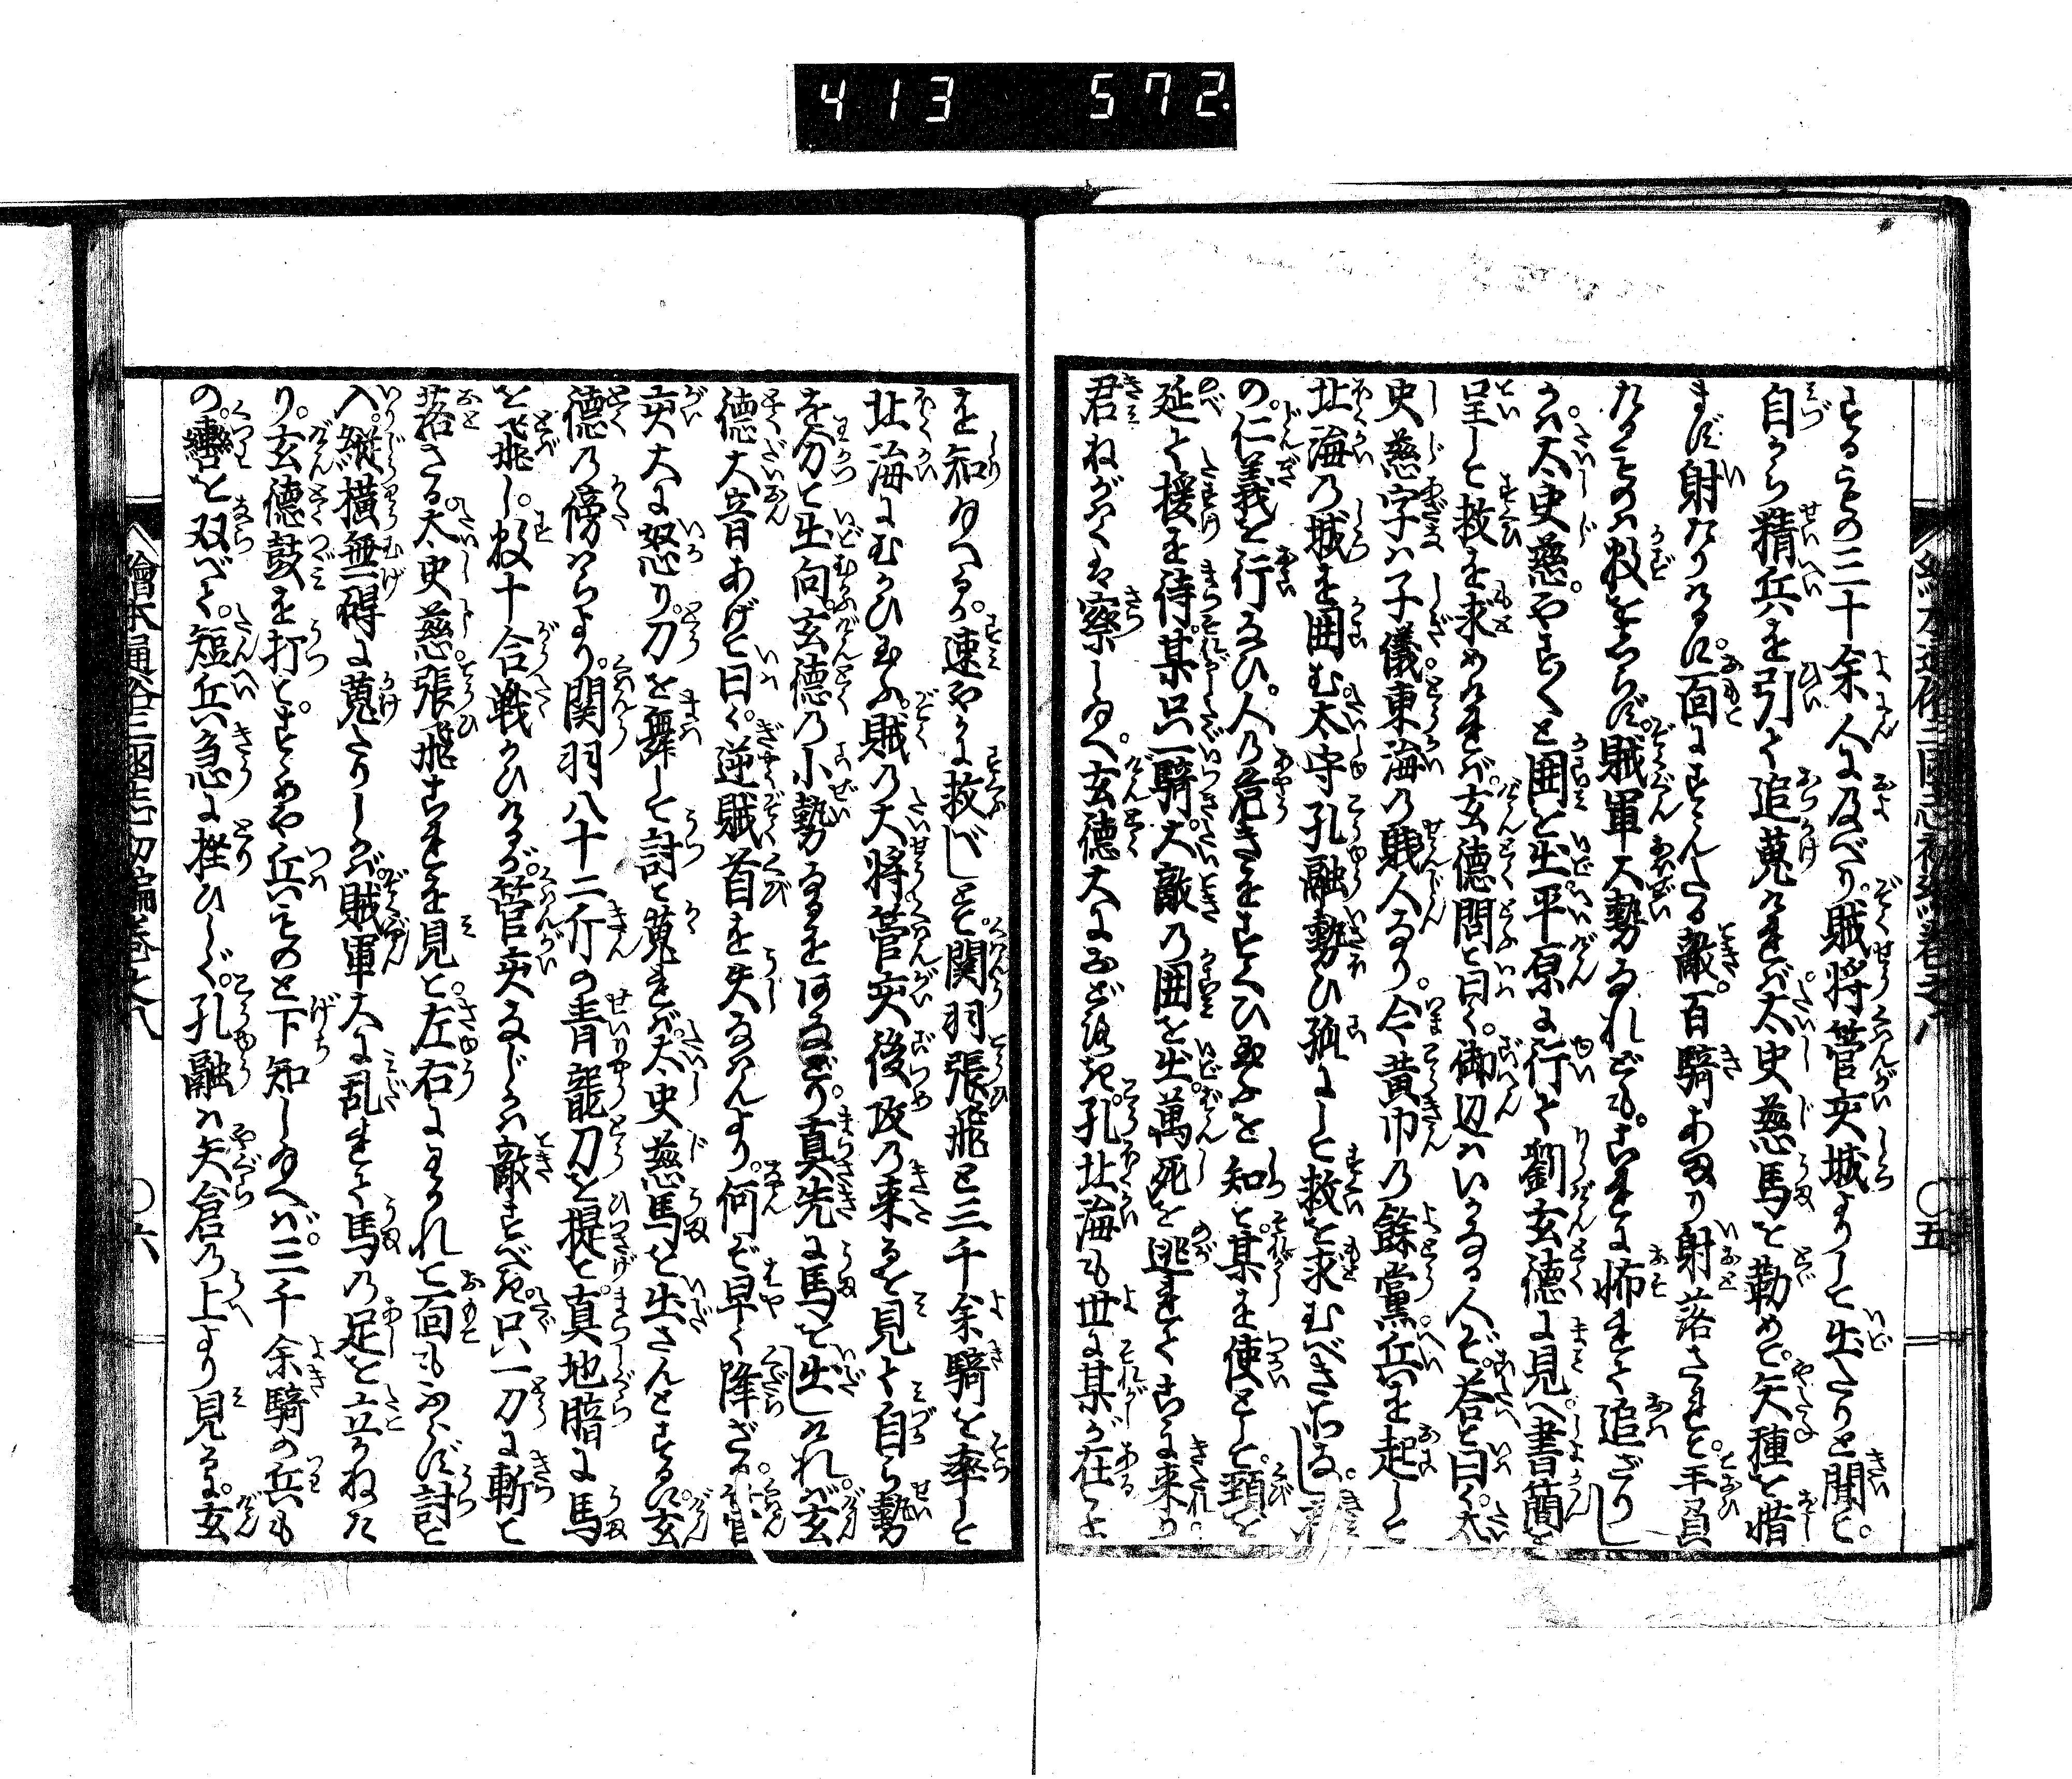 413 572.
するもの三十余人に及べり。賊将管亥城よりして出たりと聞て。
自ら精兵を引て追蒐ければ。太史慈馬を勒めて。矢種を惜
まず射たりけるに。面にすゝんたる敵。百騎あまり射落されて。手負
たるものハ数をしらず。賊軍大勢なれども。これに怖れて追ざりし
かバ。太史慈。やすく〳〵と囲を出。平原に行て劉玄徳に見へ。書簡を
呈して救を求めければ。玄徳問て曰く。御辺ハいかなる人ぞ。答て曰く。太
史慈字ハ子儀。東海の賎人なり。今黄巾の餘黨。兵を起して
北海の城を囲む。太守孔融勢ひ孤にして救を求むべき所なし。君
の仁義を行なひ。人の危きをすくひ玉ふを知て。某を使として。頸を
延て援を待。某只一騎。大敵の囲を出。萬死を逃れてこゝに来る。
君ねがハくは察し玉へ。玄徳大におどろき。孔北海も世に某が在こと
を知り玉へるか。速やかに救べしとて。関羽張飛と三千余騎を率して
北海にむかひ玉ふ。賊の大将管亥後攻の来るを見て自ら勢
を分て出向。玄徳の小勢なるをあなどり。真先に馬を出しけれバ。玄
徳大音あげて曰く。逆賊首を失なハんより。何ぞ早く降ざる。管
亥大に怒り。刀を舞して討て蒐れば。太史慈馬を出さんとするに。玄
徳の傍ハらより。関羽八十二斤の青龍刀を提て。真地暗に馬
を飛し。数十合戦かひけるが。管亥なじかハ敵すべき。只一刀に斬て
落さる。太史慈。張飛これを見て。左右にわかれて面もふらず討て
入。縦横無碍に蒐たりしかバ。賊軍大に乱れて馬の足を立かねた
り。玄徳鼓を打て。すゝめや兵ものと下知し玉へバ。三千余騎の兵も
の。轡を双べて。短兵急に挫ひしぐ。孔融ハ矢倉の上より見るに。玄
繪本通俗三國志初編巻之八
〇五
繪本通俗三國志初編巻之八
〇六